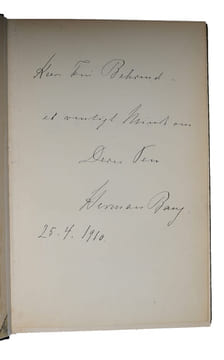 Herr Fini Behrend -
et venligt Minde om
Deres Ven
Herman Bang.
25-4. 1910.